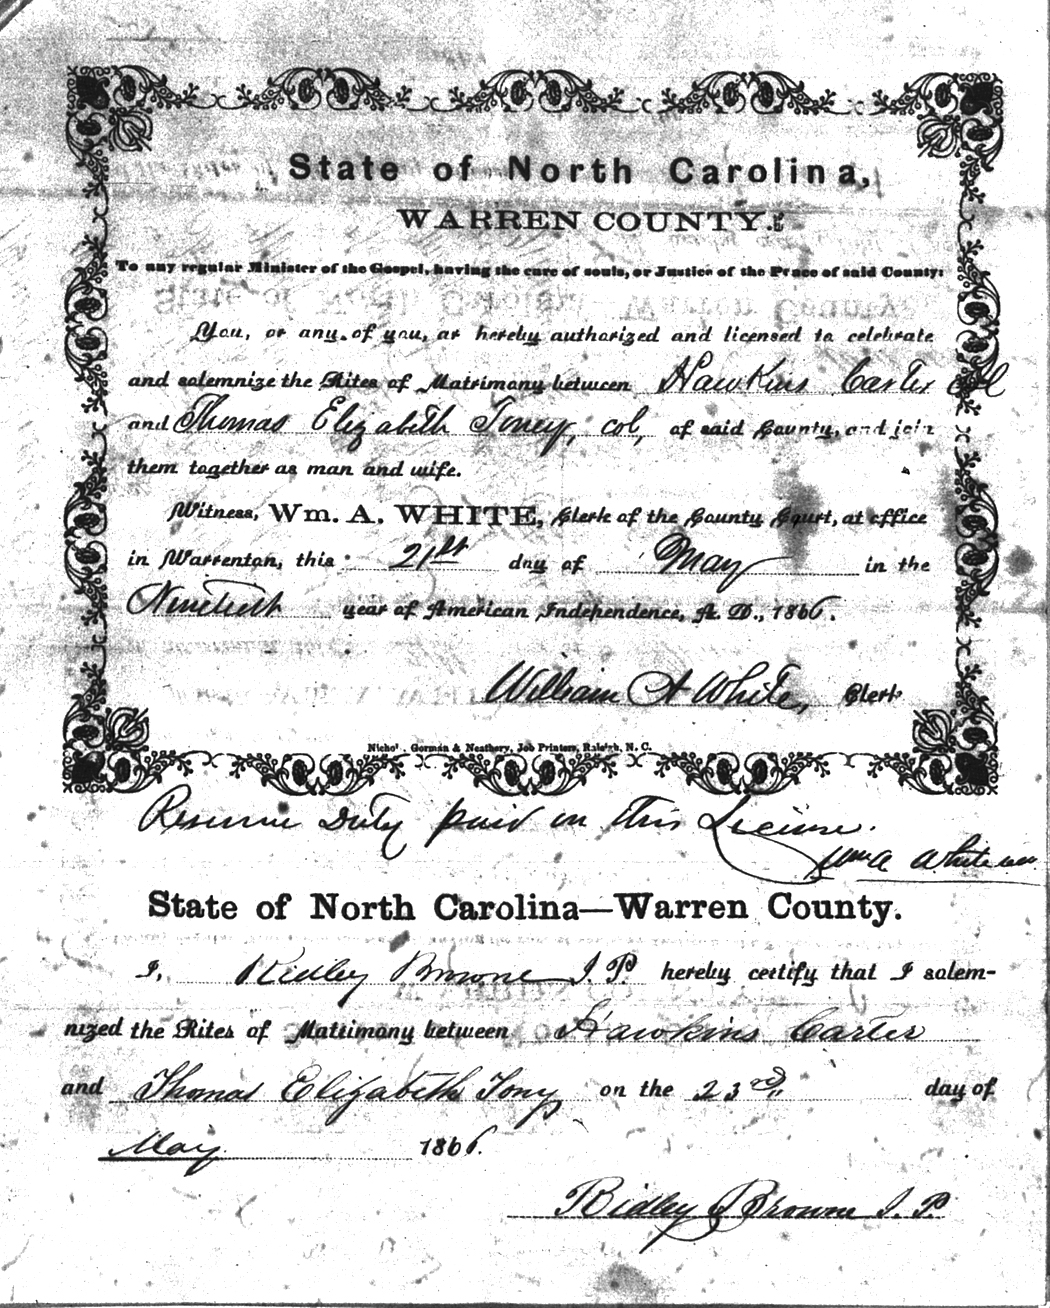 State of North Carolina,
WARREN COUNTY.
To any regular Minister of the Gospel, having the care of souls, or Justice of the Peace of said County:
You, or any of you, ar hereby authorized and licensed to celebrate
and solemnize the Rites of Matrimony between Hawkins Carter Col
and Thomas Elizabeth Toney, col, of said County, and join
them together as man and wife.
Witness, Wm. A. WHITE, Clerk of the County Court, at office
in Warrenton, this 21st day of May in the
Ninetieth year of American Independence, A. D., 1866.
William A White, Clerk
Nichols, Gorman & Neathery, Job Printers, Raleigh, N. C.
Revenue Duty paid on this License.
Wm A White
State of North Carolina—Warren County.
I, Ridley Browne J. P. hereby certify that I solem-
nized the Rites of Matrimony between Hawkins Carter
and Thomas Elizabeth Tony on the 23rd day of
May 1866.
Ridley Browne J. P.